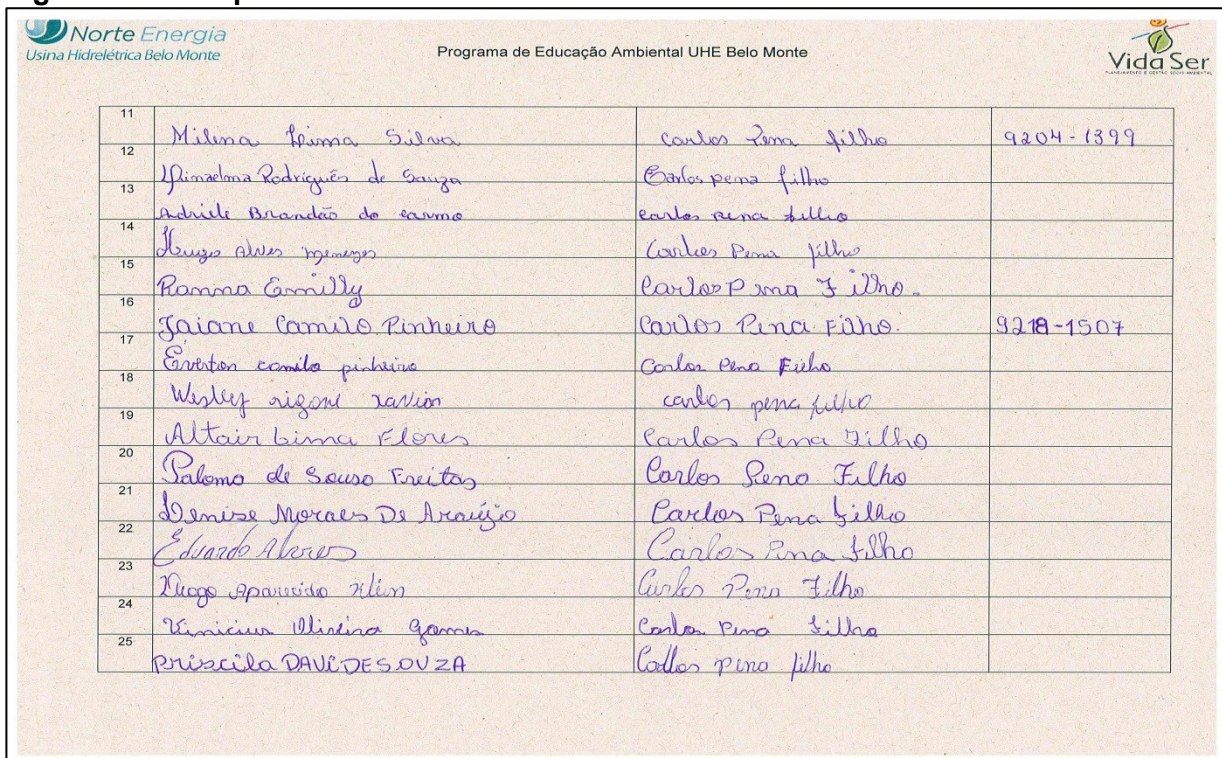 Norte Energia
Usina Hidrelétrica Belo Monte
Programa de Educação Ambiental UHE Belo Monte
Vida Ser
11 Milena Lima Silva carlos Pena filho 9204-1399
12 Rodrigues de Souza Carlos pena filho
13 Adriele Brandão do carmo carlos pena filho
14 Hugo Alves menezes Carlos Pena filho
15 Ranna Emilly Carlos Pena Filho.
16 Jaiane Camilo Pinheiro Carlos Pena Filho. 9218-1507
17 Everton camilo pinheiro Carlos Pena Filho
18 Wesley carlos pena filho
19 Altair Lima Flores Carlos Pena Filho
20 Paloma de Souso Freitas Carlos Pena Filho
21 Denise Moraes De Araújo Carlos Pena Filho
22 Eduardo Carlos Pena filho
23 Aparecido Carlos Pena Filho
24 Vinicius Oliveira gomes Carlos Pena Filho
25 priscila DAVI DE SOUZA pena filho